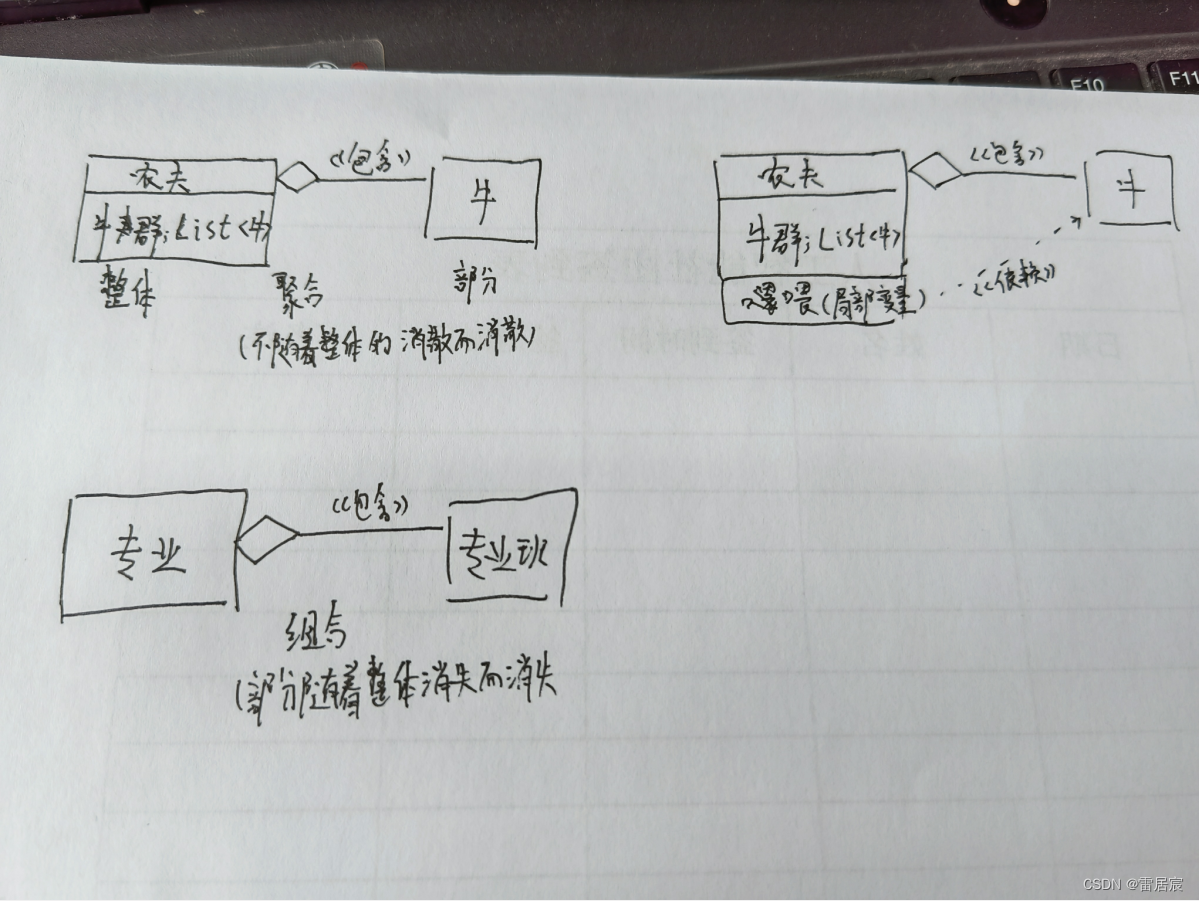 农夫
《包含》
牛
牛群:List<牛>
整体
聚合
部份
(不随着整体的消散而消散)
农夫
《包含》
牛
牛群:List<牛>
喂(局部变量)
《依赖》
专业
《包含》
专业班
组合
(部分随着整体消失而消失
日期
姓名
签到时间
F10
F11
CSDN @雷居宸